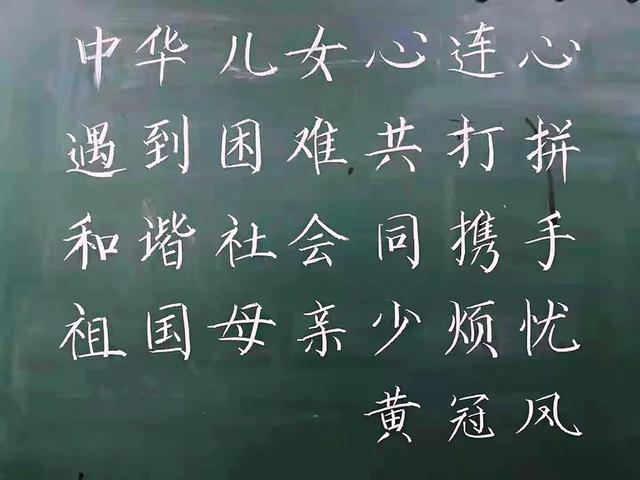 中华儿女心连心
遇到困难共打拼
和谐社会同携手
祖国母亲少烦忧
黄冠风